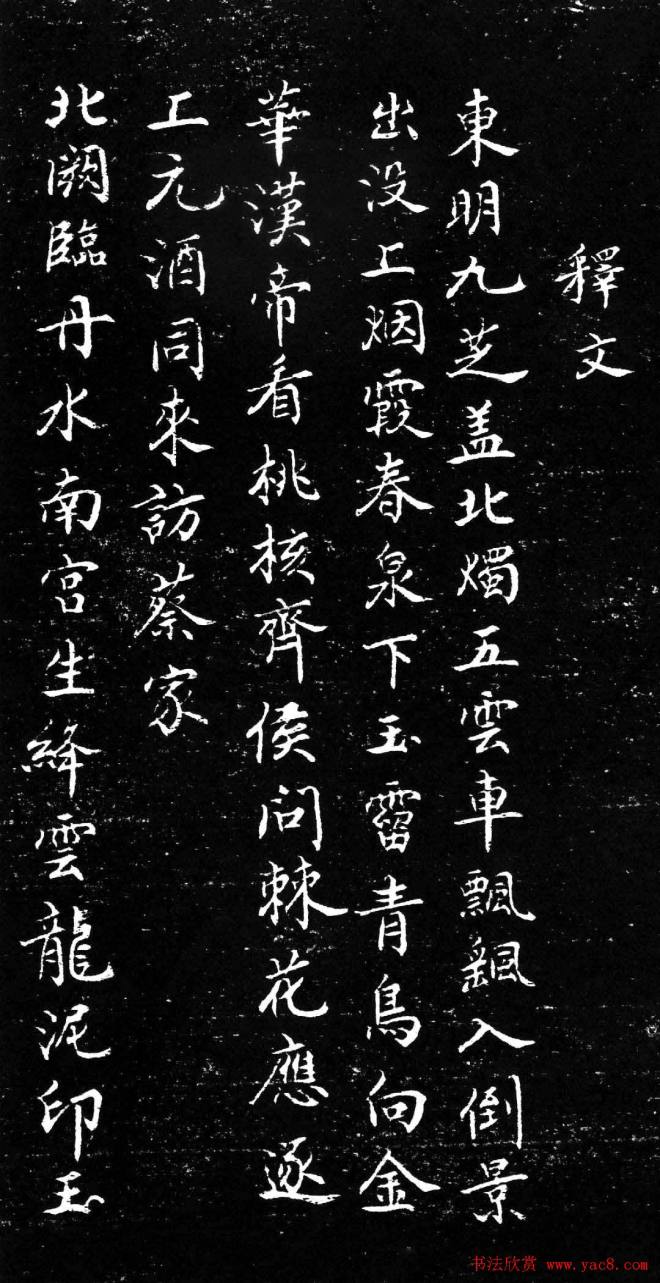 釋文
東明九芝盖北燭五雲車飄颻入倒景
出没上烟霞春泉下玉霤青鳥向金
華漢帝看桃核齊侯問棘花應逐
上元酒同來訪蔡家
北闕臨丹水南宮生絳雲龍泥印玉
书法欣赏 www.yac8.com